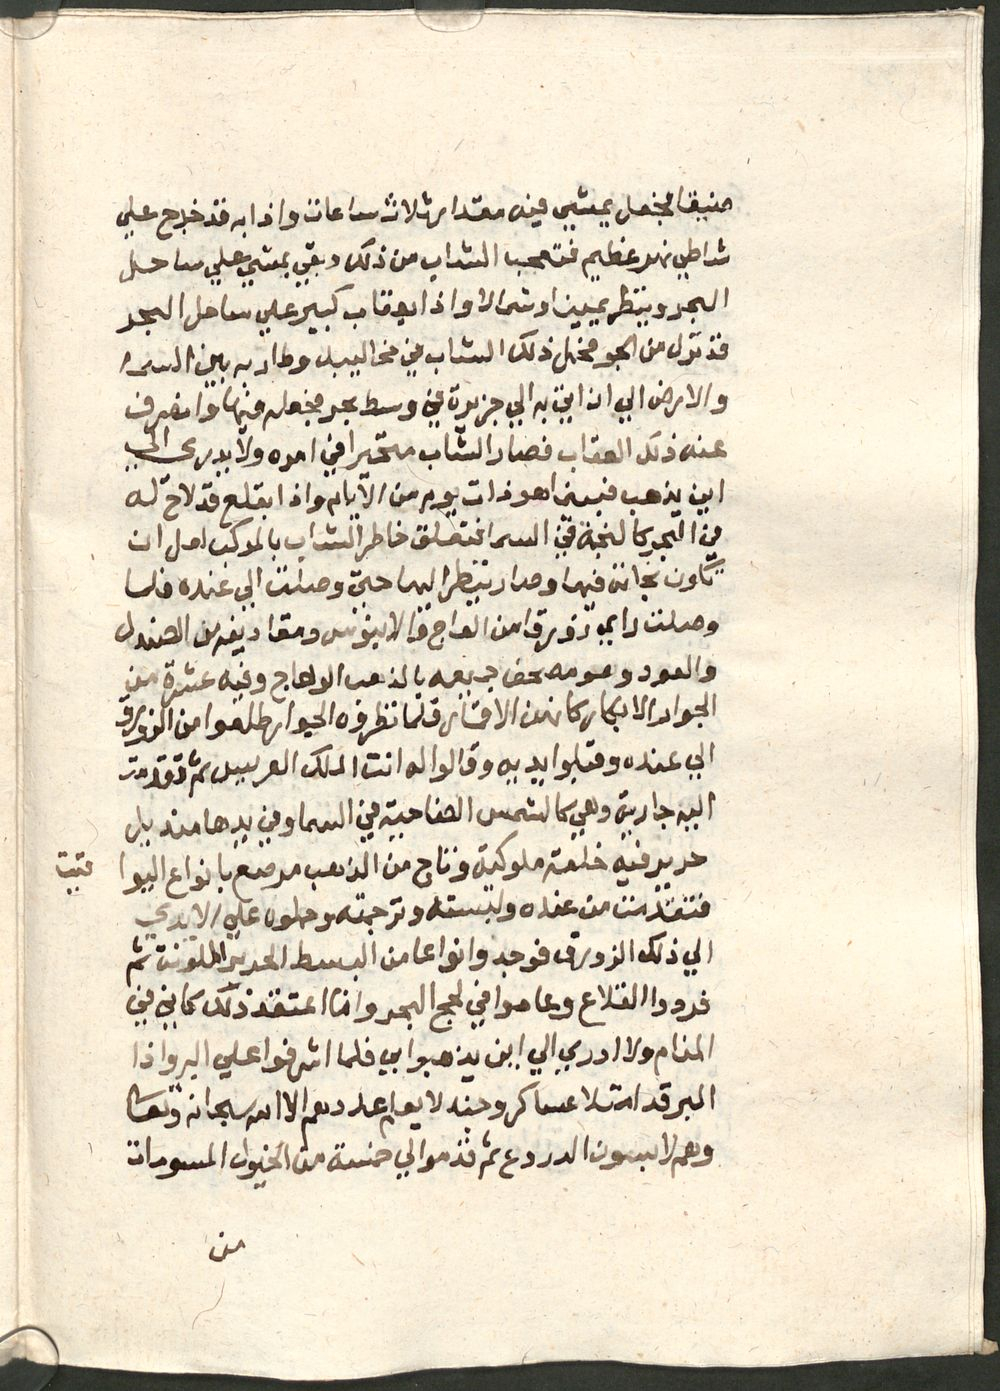 ضيقا فجعل يمشي فيه مقدار ثلاث ساعات واذا به قد خرج علي
شاطي نهر عظيم فتعجب الشاب من ذلك وبقي يمشي علي ساحل
البحر وينظر يمينا وشمالا واذا بعقاب كبير علي ساحل البحر
قد نزل من الجو فحمل ذلك الشاب في مخاليبه وطار به بين السما
والارض الي ان اتي به الي جزيرة في وسط بحر فجعله فيها وانصرف
عنه ذلك العقاب فصار الشاب متحيرا في امره ولا يدري الي
اين يذهب فبينما هو ذات يوم من الايام واذا بقلع قد لاح له
في البحر كالنجمة في السما فتعلق خاطر الشاب بالمركب لعل ان
تكون نجاته فيها وصار ينظر اليها حتي وصلت الي عنده فلما
وصلت راي زورقا من العاج والابنوس ومقاديفه من الصندل
والعود وهو مصفح جميعه بالذهب الوهاج وفيه عشرة من
الجوار الابكار كانهن الاقمار فلما نظروه الجوار طلعوا من الزورق
الي عنده وقبلوا يديه وقالوا له انت الملك العريس ثم تقدمت
اليه جارية وهي كالشمس الضاحية في السما وفي يدها منديل
حرير فيه خلعة ملوكية وتاج من الذهب مرصع بانواع اليوا قيت
فتقدمت من عنده ولبسته وتوجته وحملوه علي الايدي
الي ذلك الزورق فوجد وانواعا من البسط الحرير الملونة ثم
فردوا القلاع وعاموا في لجج البحر وانا اعتقد ذلك كاني في
المنام ولا ادري الي اين يذهبوا بي فلما اشرفوا علي البر واذا
البر قد امتلا عساكر وجند لا يعلم عددهم الا الله سبحانه وتعالي
وهم لابسون الدروع ثم قدموا لي خمسة من الخيول المسومات
من